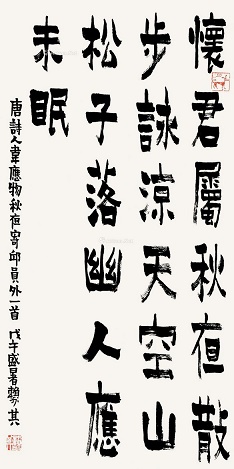 懷君屬秋夜散
步詠涼天空山
松子落幽人應
未眠
唐詩人韋應物秋夜寄邱員外一首 戊午盛暑賴少其